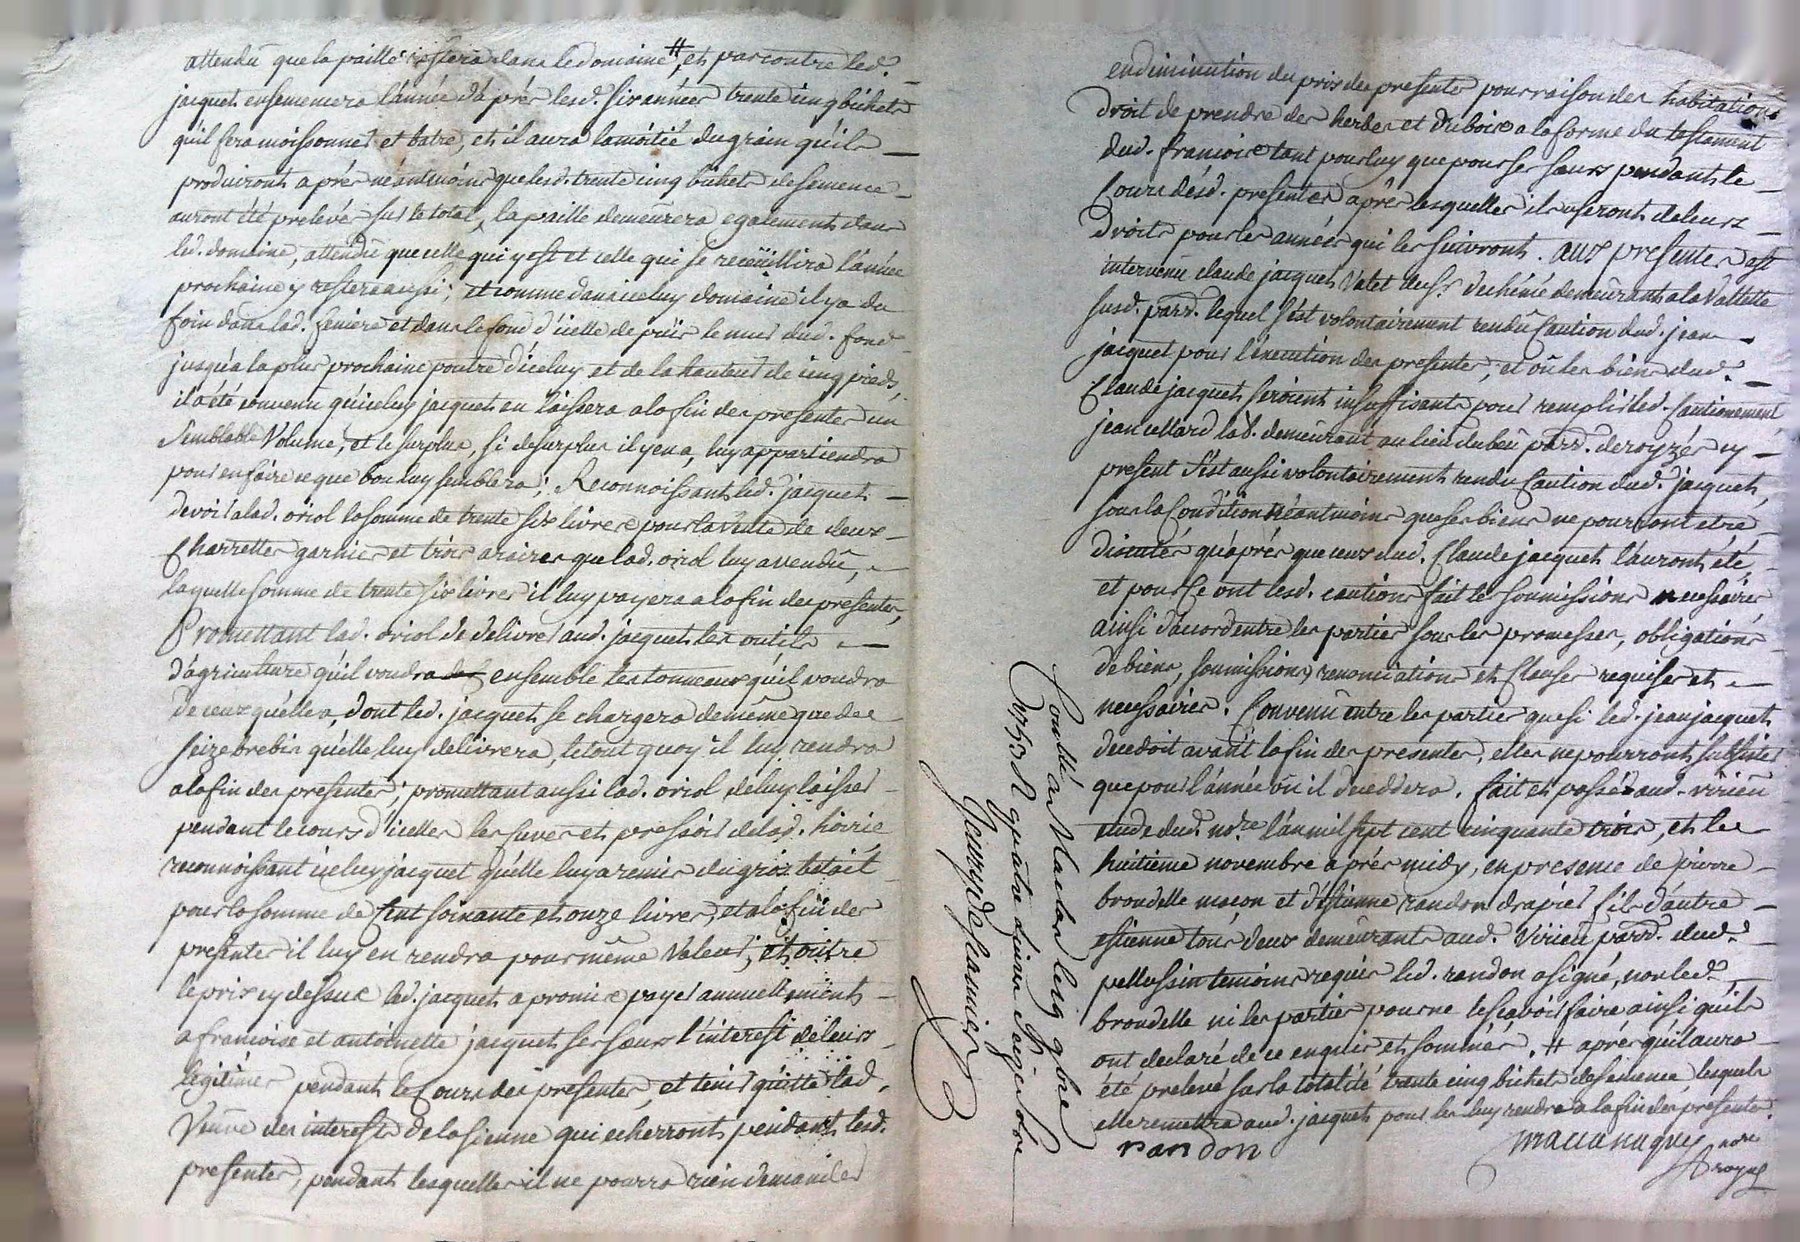 attendu que la paille restera dans le domaine #, et par contre led.
jacquet ensemencera l'année d'a prés lesd. six années trente cinq bichets
quil fera moissonner et batre, et il aura la moitié du grain quils
produiront aprés neantmoins que lesd. trente cinq bichets de semence
auront été prelevés sur le total, la paille demeurera egalement dans
led. domaine, attendu que celle qui y est et celle qui se receüillira l'année
prochaine y restera aussi; et comme dans iceluy domaine il y a du
foin dans lad. feniere et dans le fond d'icelle depuis le mur dud. fond
jusqu'a la plus prochaine poutre d'iceluy et de la hauteur de cinq pieds,
il a été convenu qu'iceluy jacquet en laissera a la fin des presentes un
semblable volume, et le surplus, si de surplus il y en a, luy appartiendra
pour en faire ce que bon luy semblera; Reconnoissant led. jacquet
devoir a lad. oriol la somme de trente six livres pour la vente de deux
charrettes garnies et trois araires que lad. oriol luy a vendu,
laquelle somme de trente six livres il luy payera a la fin des presentes,
Promettant lad. oriol de delivrer aud. jacquet les outils
d'agriculture qu'il voudra ensemble les tonneaux qu'il voudra
de ceux qu'elle a, dont led. jacquet se chargera de même que des
seize brebis qu'elle luy delivrera, le tout quoy il luy rendra
a la fin des presentes; promettant aussi lad. oriol de luy laisser
pendant le cours d'icelles les cuves et pressoir de lad. hoirie
reconnoissant iceluy jacquet qu'elle luy a remis du gros betail
pour la somme de cent soixante et onze livres, et a la fin des
presentes il luy en rendra pour même valeur; et outre
le prix cy dessus led. jacquet a promis payer annuellement
a francoise et antoinette jacquet ses sœurs l'interest de leurs
legitimes pendant le cours des presentes, et tenir quitte lad.
veuve des interests de la sienne qui echerront pendant lesd.
presentes, pendant lesquelles il ne pourra rien demander
en diminution du prix des presentes pour raison des habitations
droit de prendre des herbes et du bois a la forme du testament
dud. francois tant pour luy que pour ses sœurs pendant le
cours desd. presentes aprés lesquelles ils useront de leurs
droits pour les années qui les suivront. aux presentes est
intervenu claude jacquet valet du sr. dechéné demeurant a la Vallette
susd. parr. lequel s'est volontairement rendu caution dud. jean
jacquet pour l'execution des presentes, et où les biens dud.
Claude jacquet seroient insuffisants pour remplir led. cautionement,
jean collard lad. demeurant au lieu du beü parr. de royzés cy
present s'est aussi volontairement rendu caution dud. jacquet,
sous la condition néantmoins que ses biens ne pourront etre
discutés qu'aprés que ceux dud. Claude jacquet l'auront été,
et pour ce ont lesd. cautions fait les soumissions necessaires
ainsi d'accord entre les parties sous les promesses, obligations
de biens, soumissions, renonciations et clauses requises et
necessaires. Convenu entre les parties que si led. jean jacquet
decedoit avant la fin des presentes, elles ne pourront subsister
que pour l'année où il decedera. fait et passé aud. virieu
etude dud. nore. l'an mil sept cent cinquante trois, et le
huitieme novembre aprés midy, en presence de pierre
brondelle maçon et d'estienne randon drapier fils d'autre
estienne tous deux demeurants aud. Virieu parr. dud.
pellussin temoins requis led. randon a signé, non led.
brondelle ni les parties pour ne le scavoir faire ainsi qu'ils
ont declaré de ce enquis et sommés. # aprés qu'il aura
été prelevé sur la totalité trente cinq bichets de semence lesquels
elle remettra aud. jacquet pour les luy rendre a la fin des presentes.
randon
nore
royal